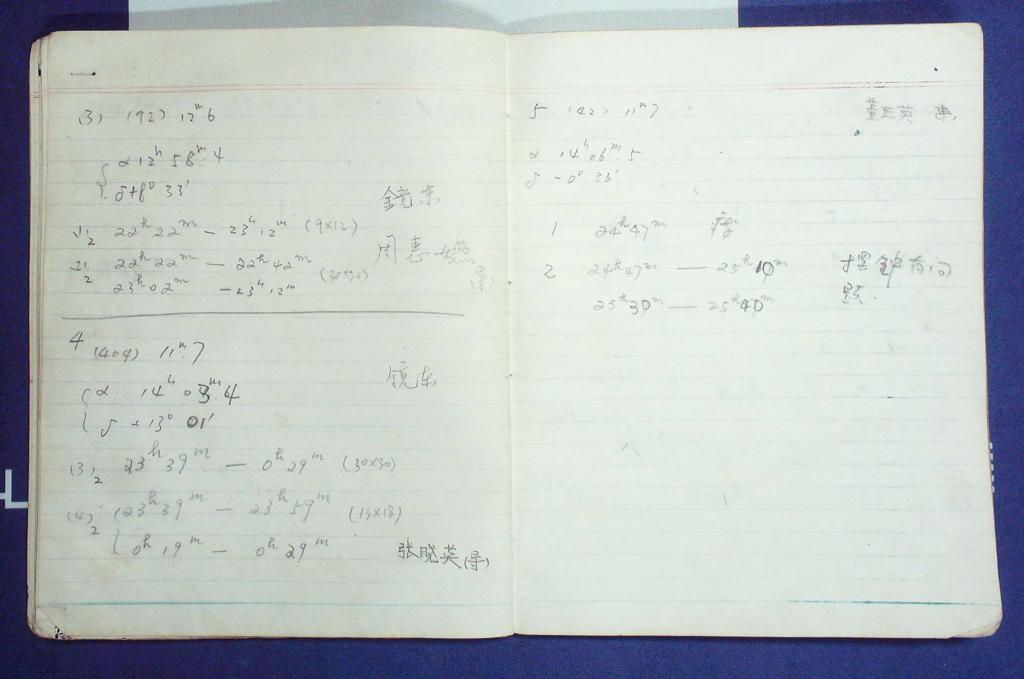 (3) (92) 12ᵐ6
α 12ʰ 58ᵐ.4
δ +8° 33'
镜东
(1)₂ 22ʰ22ᵐ — 23ʰ12ᵐ (9×12)
周惠
(2)₂ 22ʰ22ᵐ — 22ʰ42ᵐ (30×30)
23ʰ02ᵐ — 23ʰ12ᵐ
4 (404) 11ᵐ.7
镜东
α 14ʰ 03ᵐ.4
δ +13° 01'
(3)₂ 23ʰ39ᵐ — 0ʰ29ᵐ (30×30)
(4)₂ 23ʰ39ᵐ — 23ʰ59ᵐ
0ʰ19ᵐ — 0ʰ29ᵐ
张晓英(导)
5 (42) 11ᵐ7
α 14ʰ06ᵐ.5
δ -0° 36'
1 24ʰ47ᵐ
2 24ʰ47ᵐ — 25ʰ10ᵐ 摆钟有问
25ʰ30ᵐ — 25ʰ40ᵐ 题.